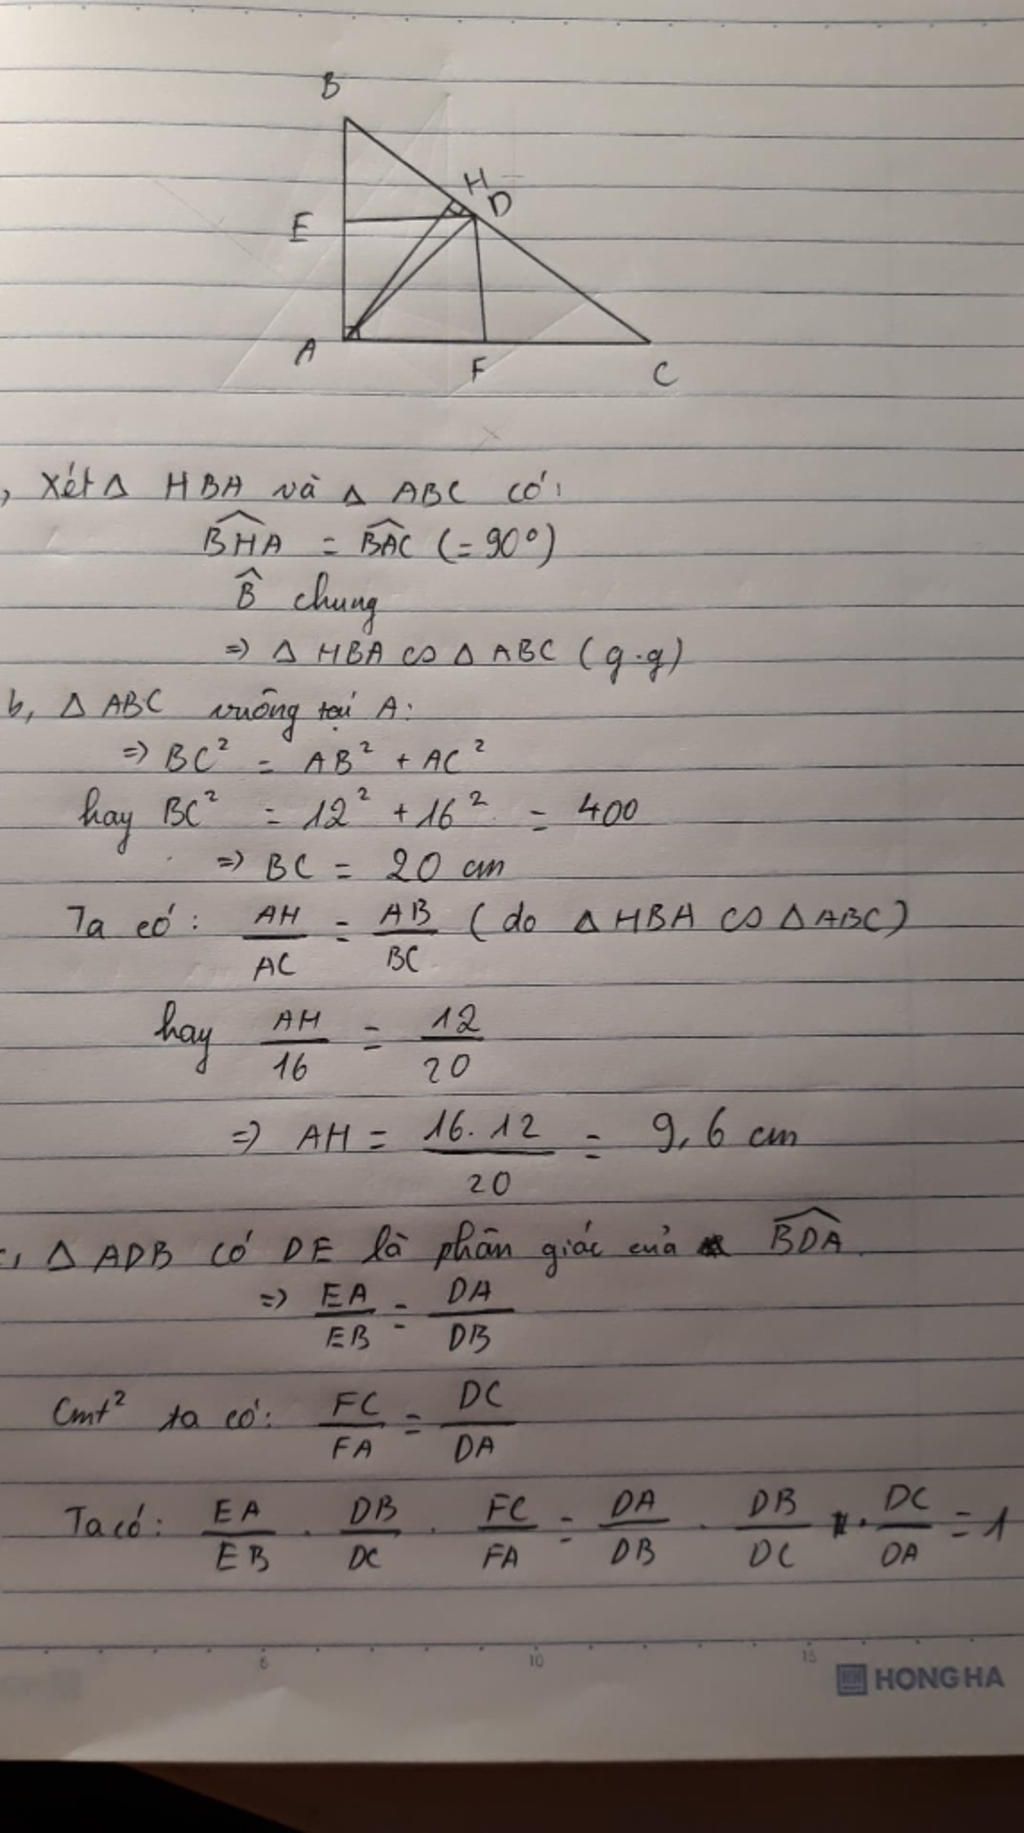 B
H
D
E
A
F
C
, Xét Δ HBA và Δ ABC có:
$\widehat{BHA}$ = $\widehat{BAC}$ (= 90°)
$\widehat{B}$ chung
=> Δ HBA ∽ Δ ABC (g.g)
b, Δ ABC vuông tại A:
=> BC² = AB² + AC²
hay BC² = 12² + 16² = 400
=> BC = 20 cm
Ta có: AH/AC = AB/BC (do Δ HBA ∽ Δ ABC)
hay AH/16 = 12/20
=> AH = 16.12/20 = 9,6 cm
c, Δ ADB có DE là phân giác của $\widehat{BDA}$
=> EA/EB = DA/DB
Cmt² ta có: FC/FA = DC/DA
Ta có: EA/EB . DB/DC . FC/FA = DA/DB . DB/DC . DC/DA = 1
5 10 15
HONG HA